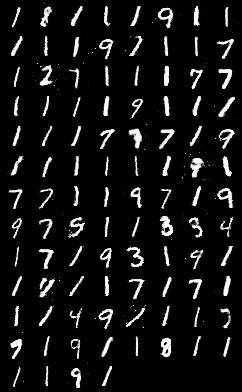 1 8 1 1 1 9 1 1
1 1 1 9 7 1 1 7
1 2 7 1 1 1 7 7
1 1 1 1 9 1 1 1
1 1 1 7 7 7 1 9
1 1 1 1 1 1 9 1
7 7 1 1 9 7 1 9
9 7 5 1 1 3 3 4
1 7 1 9 3 1 9 1
1 1 1 7 1 7 1
1 1 4 9 1 1 1 3
7 1 9 1 1 8 1 1
1 1 9 1